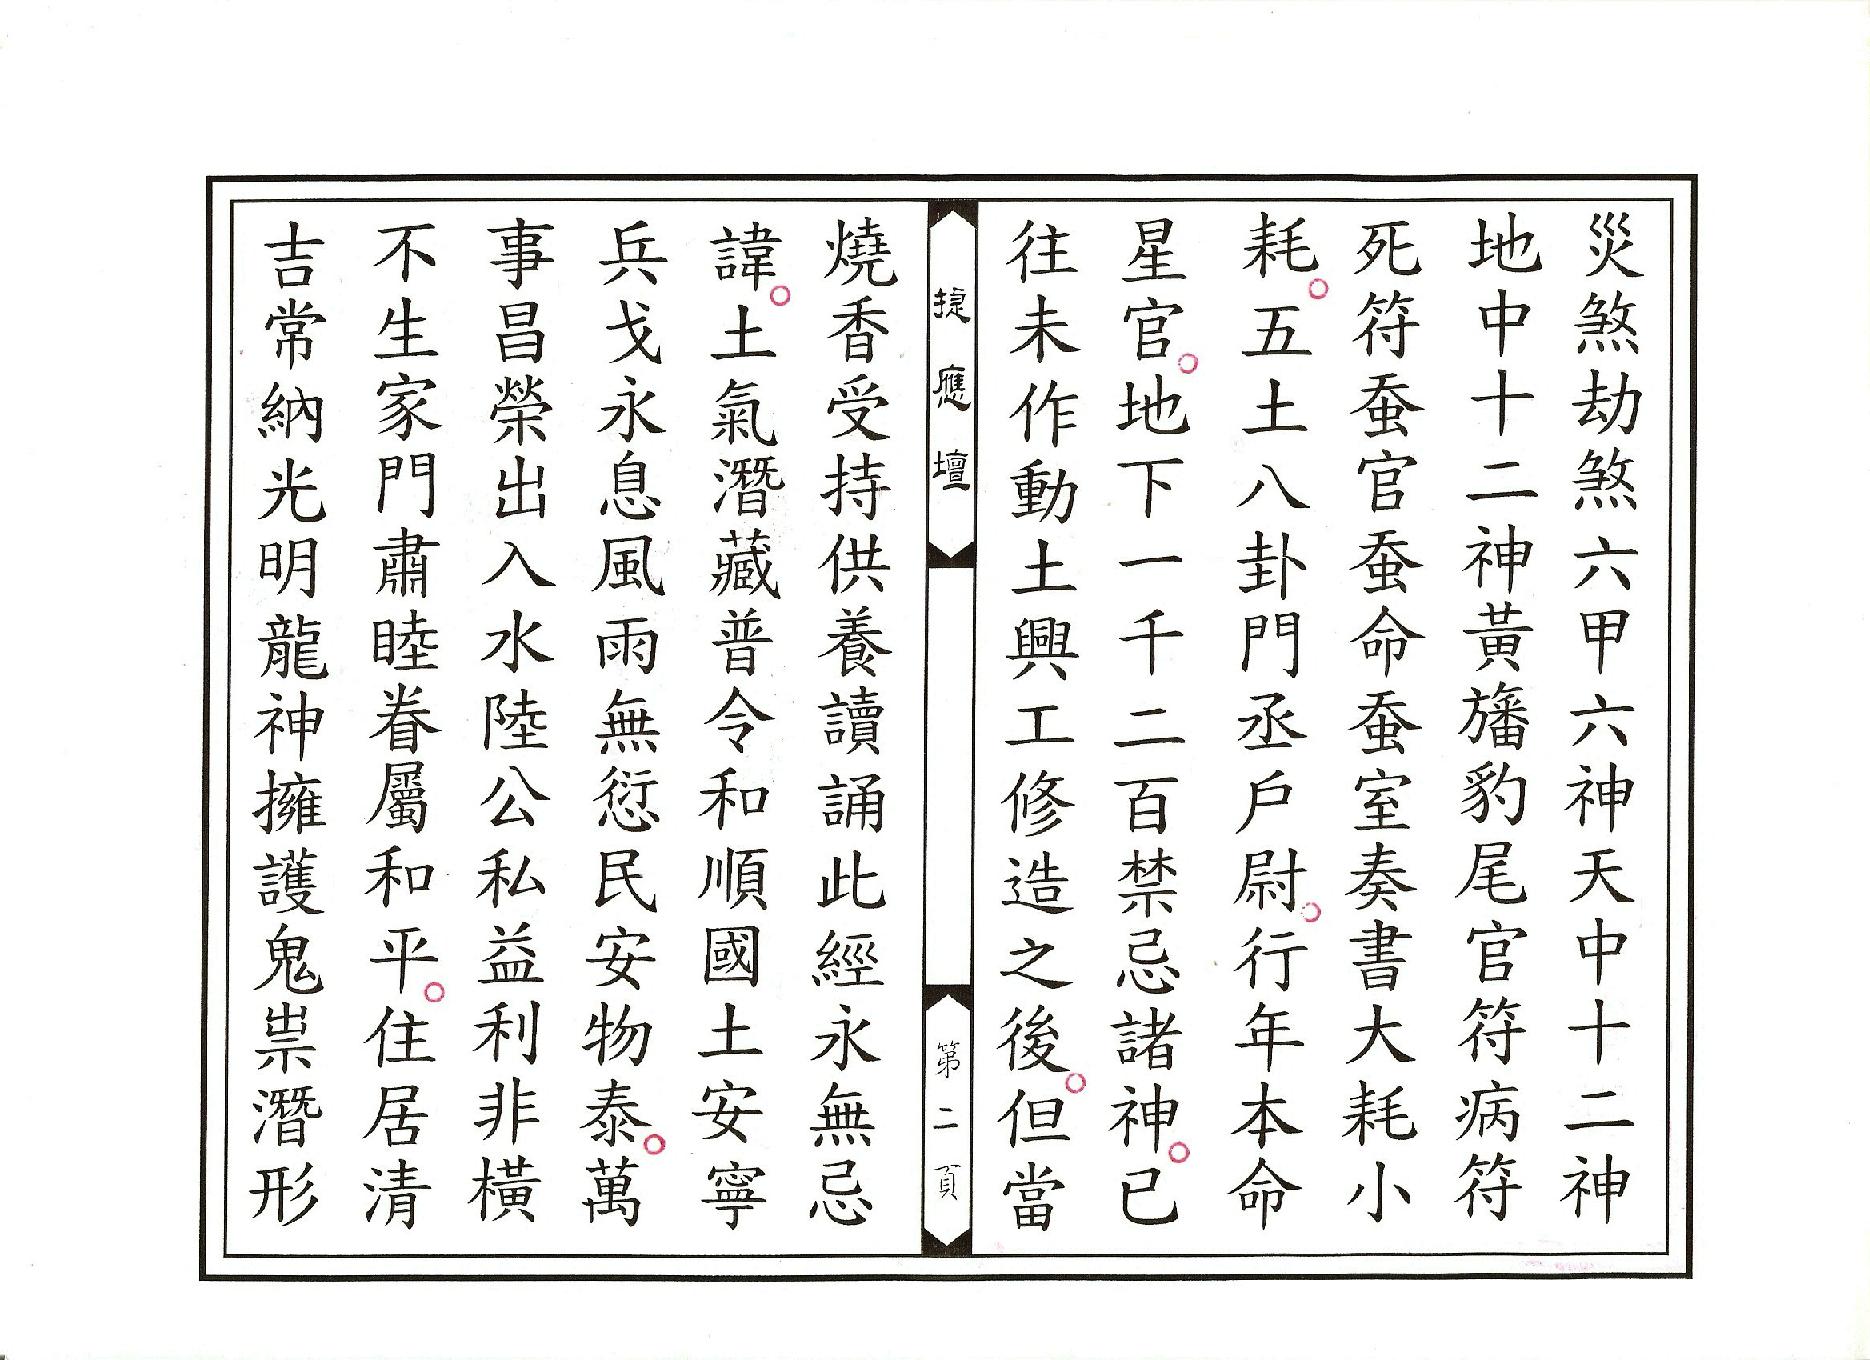 災煞劫煞六甲六神天中十二神
地中十二神黃旛豹尾官符病符
死符蚕官蚕命蚕室奏書大耗小
耗。五土八卦門丞戶尉。行年本命
星官。地下一千二百禁忌諸神。已
往未作動土興工修造之後。但當
捷應壇
第二頁
燒香受持供養讀誦此經永無忌
諱。土氣潛藏普令和順國土安寧
兵戈永息風雨無愆民安物泰。萬
事昌榮出入水陸公私益利非橫
不生家門肅睦眷屬和平。住居清
吉常納光明龍神擁護鬼祟潛形